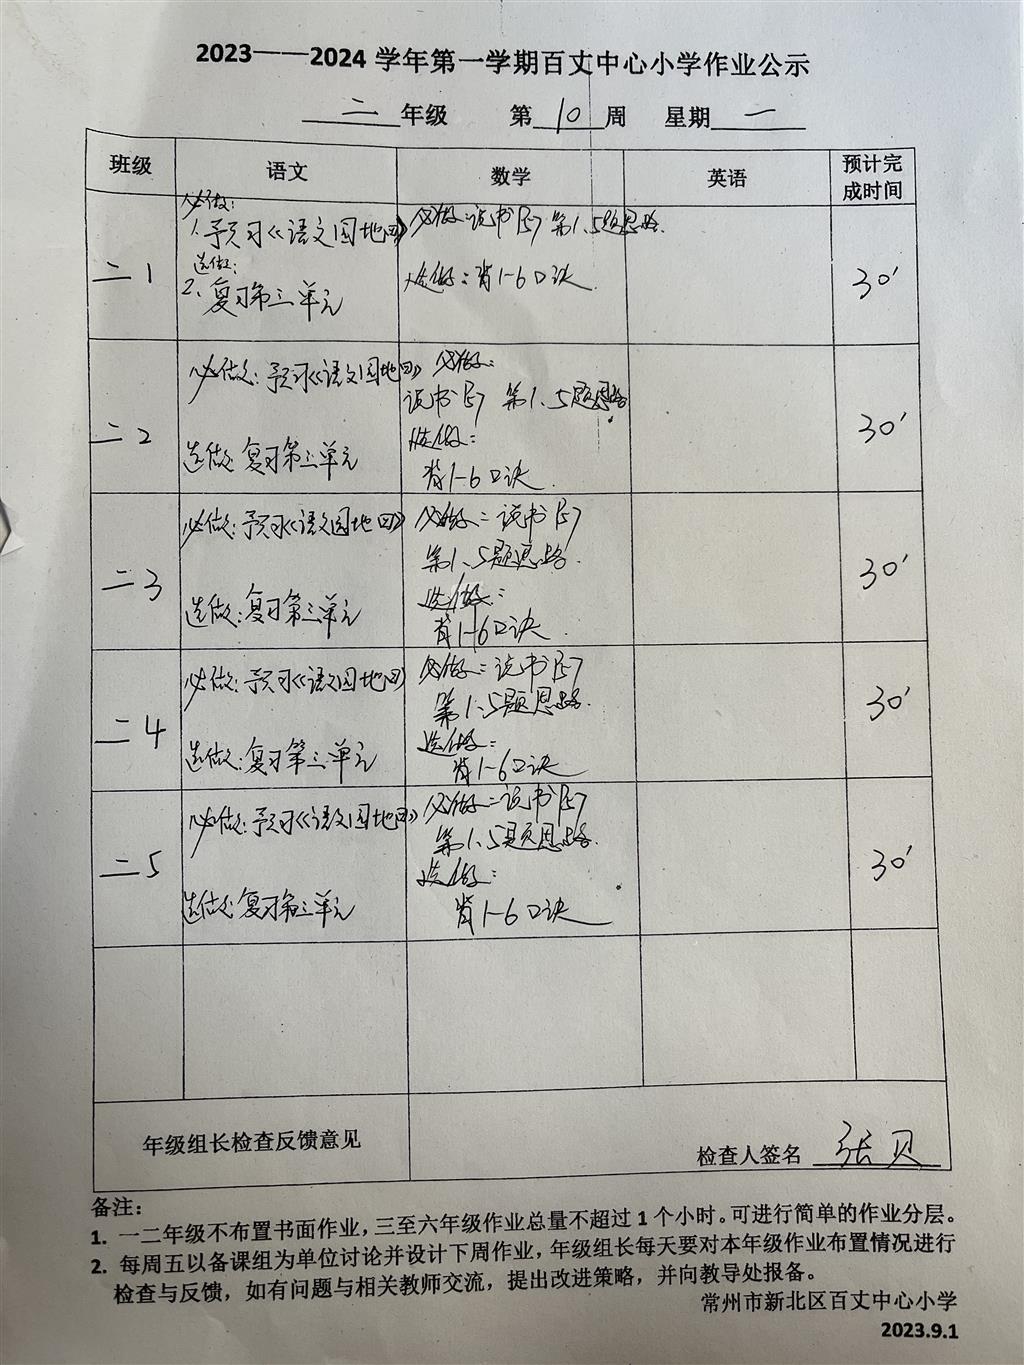 2023——2024 学年第一学期百丈中心小学作业公示
二 年级 第 10 周 星期 一
班级 语文 数学 英语 预计完成时间
二1
必做:
1. 预习《语文园地四》
选做:
2、复习第三单元
必做:说书P57 第1、5题思路.
选做:背1-6口诀.
30'
二2
必做:预习《语文园地四》
选做:复习第三单元
必做:
说书P57 第1、5题思路.
选做:
背1-6口诀.
30'
二3
必做:预习《语文园地四》
选做:复习第三单元
必做:说书P57
第1、5题思路.
选做:
背1-6口诀.
30'
二4
必做:预习《语文园地四》
选做:复习第三单元
必做:说书P57
第1、5题思路.
选做:
背1-6口诀
30'
二5
必做:预习《语文园地四》
选做:复习第三单元
必做:说书P57
第1、5题思路.
选做:
背1-6口诀
30'
年级组长检查反馈意见
检查人签名 张贝
备注:
1. 一二年级不布置书面作业,三至六年级作业总量不超过 1 个小时。可进行简单的作业分层。
2. 每周五以备课组为单位讨论并设计下周作业,年级组长每天要对本年级作业布置情况进行
检查与反馈,如有问题与相关教师交流,提出改进策略,并向教导处报备。
常州市新北区百丈中心小学
2023.9.1